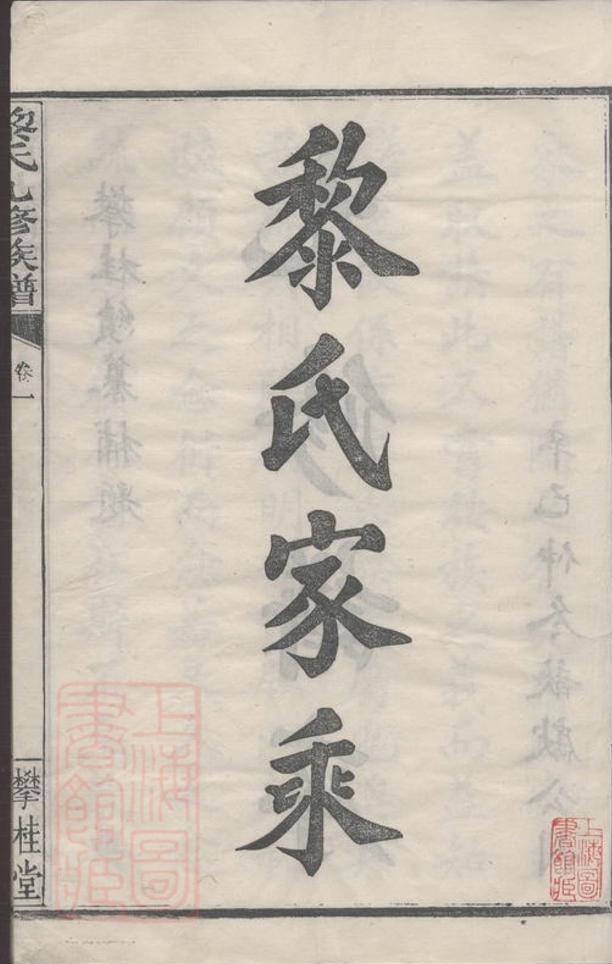 黎氏家乘
黎氏九修族譜
卷一
攀桂堂
上海圖書館藏
上海圖書館藏